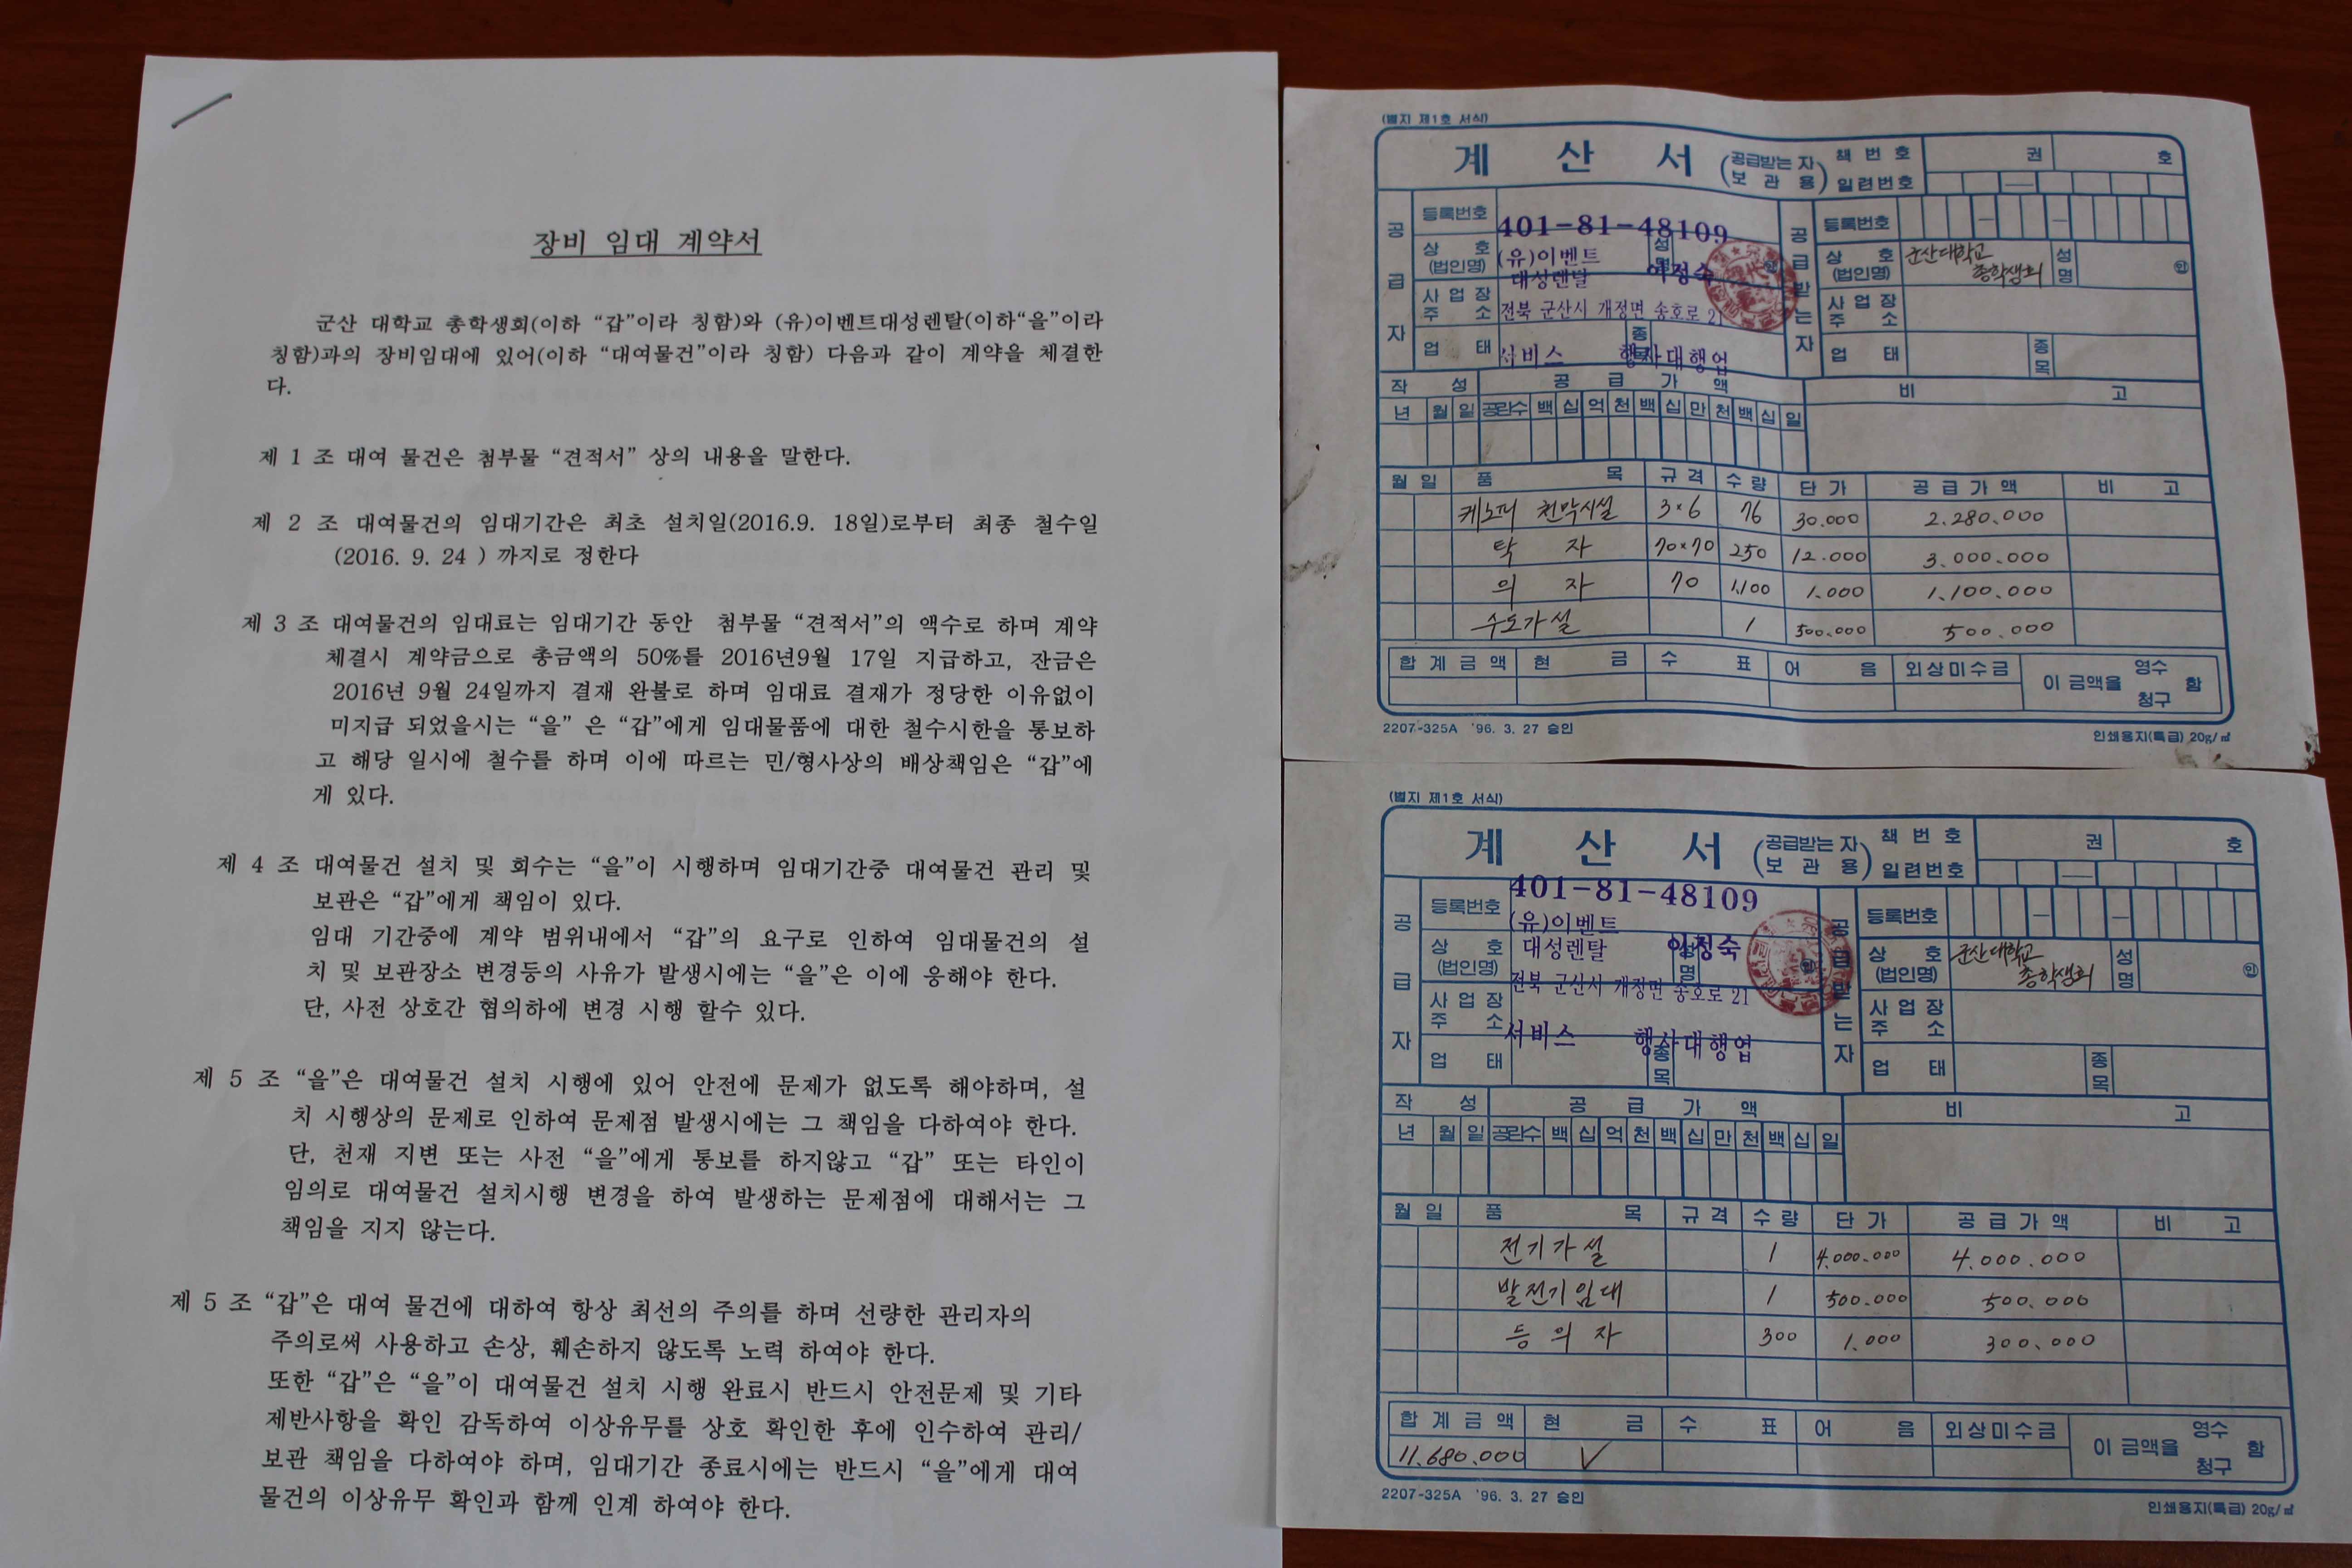 장비 임대 계약서
군산 대학교 총학생회(이하 “갑”이라 칭함)와 (유)이벤트대성렌탈(이하“을”이라
칭함)과의 장비임대에 있어(이하 “대여물건”이라 칭함) 다음과 같이 계약을 체결한
다.
제 1 조 대여 물건은 첨부물 “견적서” 상의 내용을 말한다.
제 2 조 대여물건의 임대기간은 최초 설치일(2016.9. 18일)로부터 최종 철수일
(2016. 9. 24 ) 까지로 정한다
제 3 조 대여물건의 임대료는 임대기간 동안 첨부물 “견적서”의 액수로 하며 계약
체결시 계약금으로 총금액의 50%를 2016년9월 17일 지급하고, 잔금은
2016년 9월 24일까지 결재 완불로 하며 임대료 결재가 정당한 이유없이
미지급 되었을시는 “을” 은 “갑”에게 임대물품에 대한 철수시한을 통보하
고 해당 일시에 철수를 하며 이에 따르는 민/형사상의 배상책임은 “갑”에
게 있다.
제 4 조 대여물건 설치 및 회수는 “을”이 시행하며 임대기간중 대여물건 관리 및
보관은 “갑”에게 책임이 있다.
임대 기간중에 계약 범위내에서 “갑”의 요구로 인하여 임대물건의 설
치 및 보관장소 변경등의 사유가 발생시에는 “을”은 이에 응해야 한다.
단, 사전 상호간 협의하에 변경 시행 할수 있다.
제 5 조 “을”은 대여물건 설치 시행에 있어 안전에 문제가 없도록 해야하며, 설
치 시행상의 문제로 인하여 문제점 발생시에는 그 책임을 다하여야 한다.
단, 천재 지변 또는 사전 “을”에게 통보를 하지않고 “갑” 또는 타인이
임의로 대여물건 설치시행 변경을 하여 발생하는 문제점에 대해서는 그
책임을 지지 않는다.
제 5 조 “갑”은 대여 물건에 대하여 항상 최선의 주의를 하며 선량한 관리자의
주의로써 사용하고 손상, 훼손하지 않도록 노력 하여야 한다.
또한 “갑”은 “을”이 대여물건 설치 시행 완료시 반드시 안전문제 및 기타
제반사항을 확인 감독하여 이상유무를 상호 확인한 후에 인수하여 관리/
보관 책임을 다하여야 하며, 임대기간 종료시에는 반드시 “을”에게 대여
물건의 이상유무 확인과 함께 인계 하여야 한다.
(별지 제1호 서식)
계 산 서 (공급받는 자 보 관 용) 책 번 호 권 호
일련번호
공급자 등록번호 401-81-48109 공급받는자 등록번호
상 호 (법인명) (유)이벤트 대성렌탈 성명 이정숙 인 상 호 (법인명) 군산대학교 총학생회 성명 인
사 업 장 주 소 전북 군산시 개정면 송호로 21 사 업 장 주 소
업 태 서비스 종목 행사대행업 업 태 종목
작 성 공 급 가 액 비 고
년 월 일 공란수 백 십 억 천 백 십 만 천 백 십 일
월 일 품 목 규 격 수 량 단 가 공 급 가 액 비 고
케노피 천막시설 3×6 76 30.000 2.280.000
탁 자 70×70 250 12.000 3.000.000
의 자 70 1,100 1.000 1.100.000
수도가설 1 500.000 500.000
합 계 금 액 현 금 수 표 어 음 외상미수금 이 금액을 영수 청구 함
2207-325A '96. 3. 27 승인 인쇄용지(특급) 20g/㎡
(별지 제1호 서식)
계 산 서 (공급받는 자 보 관 용) 책 번 호 권 호
일련번호
공급자 등록번호 401-81-48109 공급받는자 등록번호
상 호 (법인명) (유)이벤트 대성렌탈 성명 이정숙 인 상 호 (법인명) 군산대학교 총학생회 성명 인
사 업 장 주 소 전북 군산시 개정면 송호로 21 사 업 장 주 소
업 태 서비스 종목 행사대행업 업 태 종목
작 성 공 급 가 액 비 고
년 월 일 공란수 백 십 억 천 백 십 만 천 백 십 일
월 일 품 목 규 격 수 량 단 가 공 급 가 액 비 고
전기가설 1 4.000.000 4.000.000
발전기임대 1 500.000 500.000
등 의 자 300 1.000 300.000
합 계 금 액 현 금 수 표 어 음 외상미수금 이 금액을 영수 청구 함
11.680.000 ✓
2207-325A '96. 3. 27 승인 인쇄용지(특급) 20g/㎡